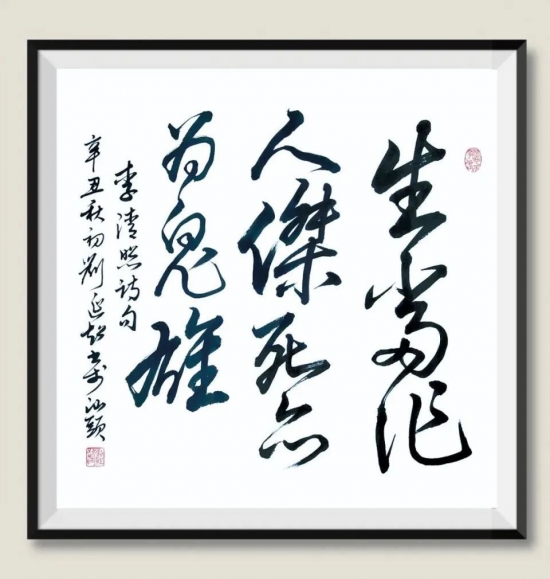 生当作
人傑死亦
为鬼雄
李清照诗句
辛丑秋初刘延超书于汕頭